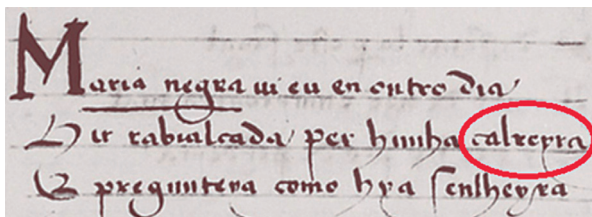 Maria negra ui eu en outro dia
Hir rabialcada per hunha calreyra
E pregunteya como hya senlheyra